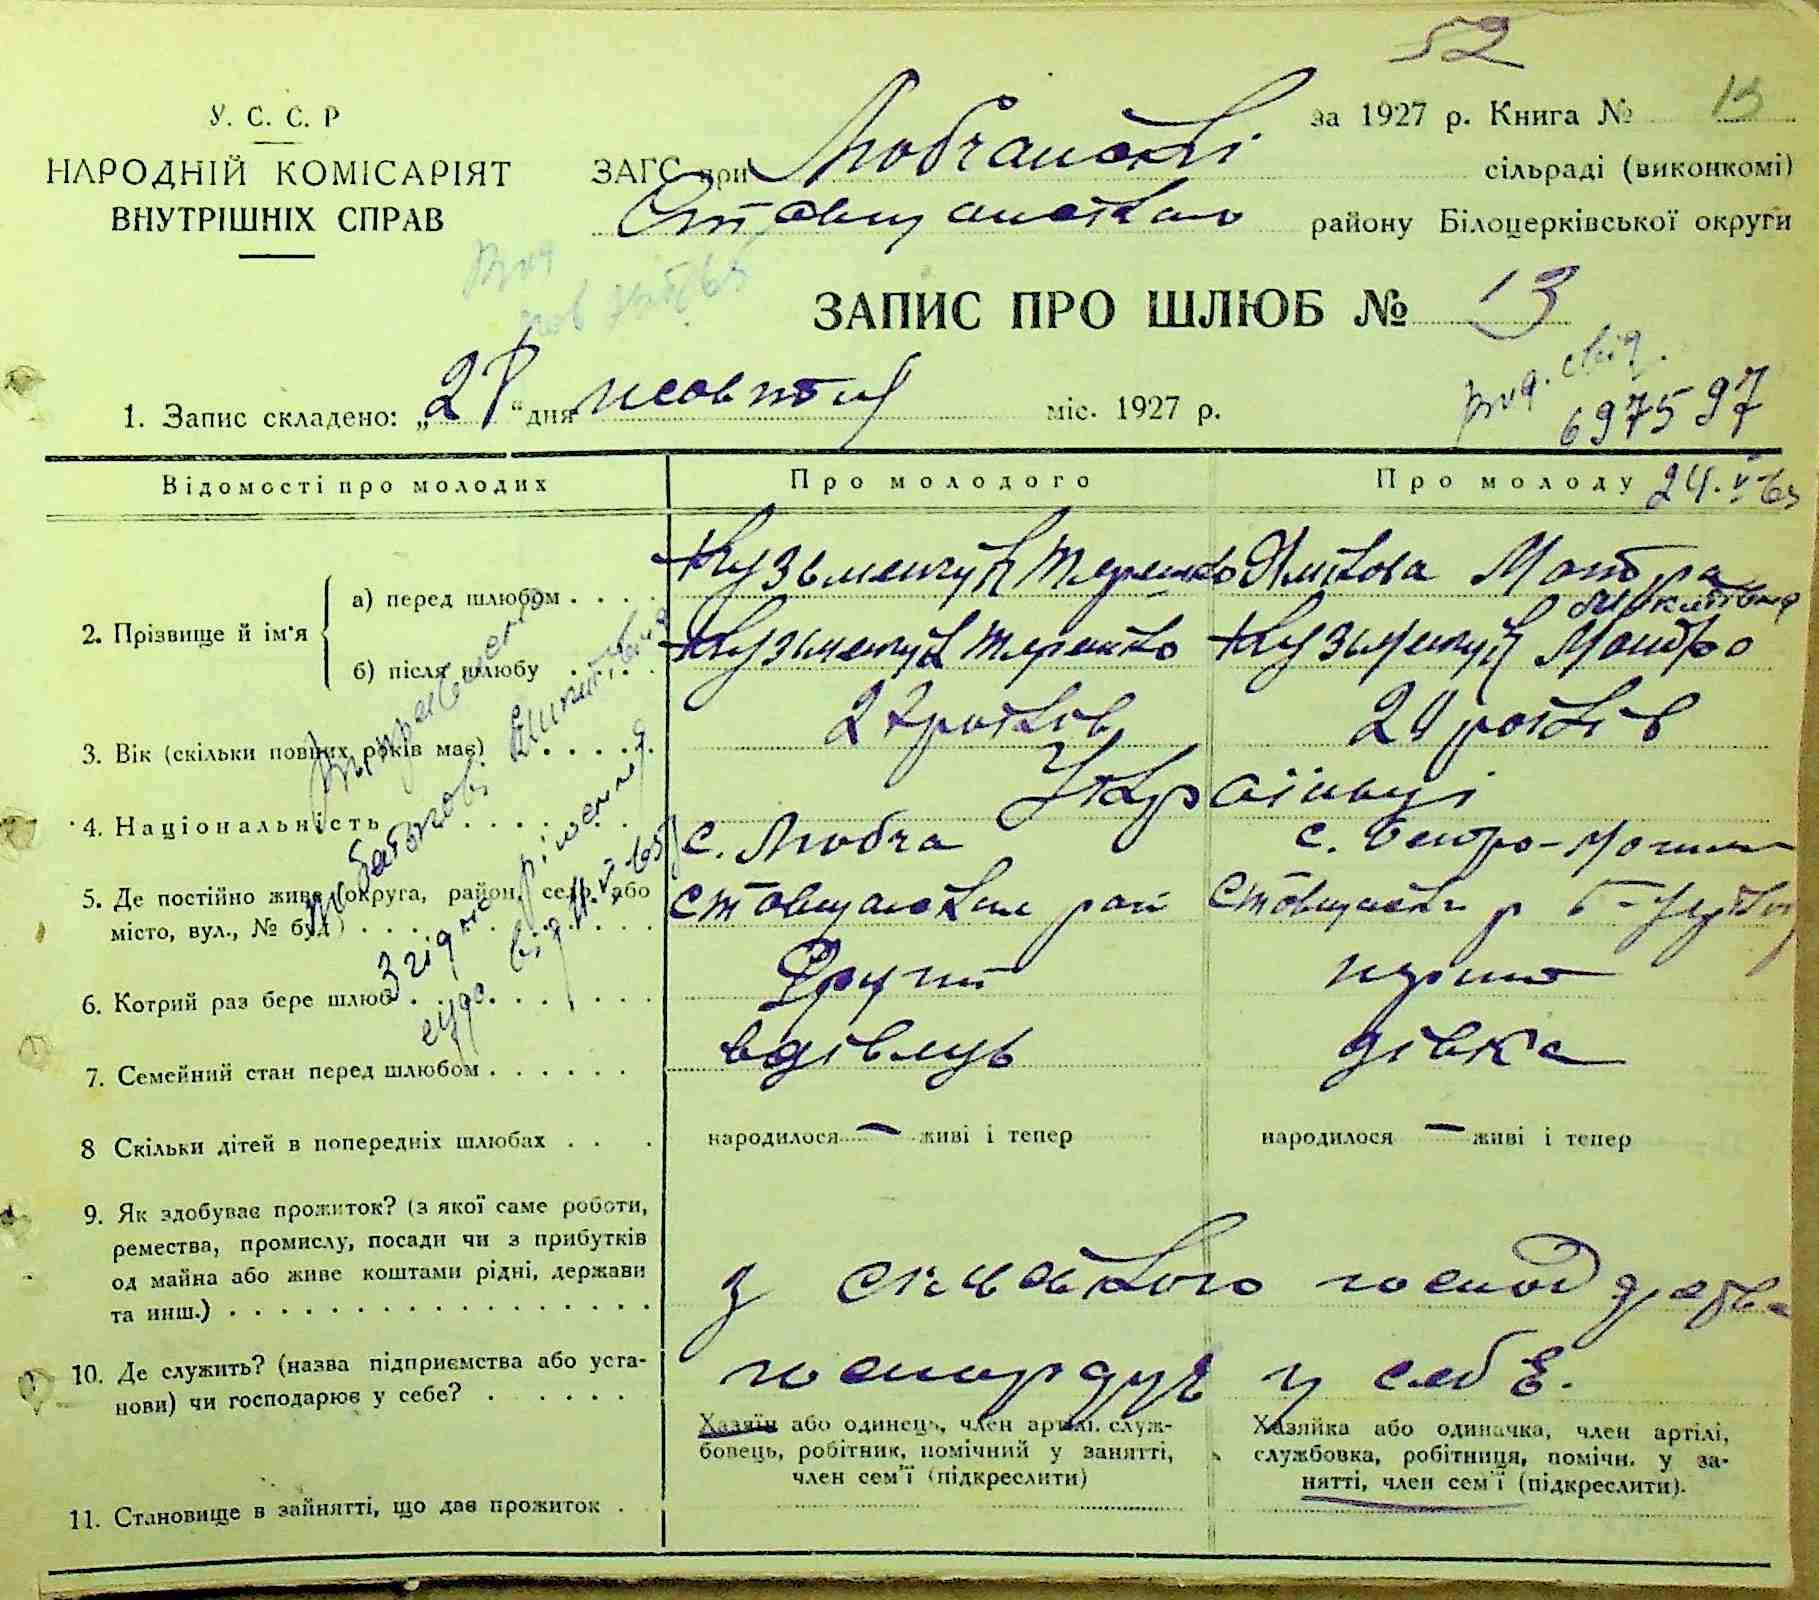 52
У. С. С. Р
НАРОДНІЙ КОМІСАРІЯТ
ВНУТРІШНІХ СПРАВ
за 1927 р. Книга № 13
ЗАГС при Любчанскі сільраді (виконкомі)
Ставищанském району Білоцерківської округи
ЗАПИС ПРО ШЛЮБ № 13
вид. свід.
697597
24.V-65
1. Запис складено: „28“ дня жовтня міс. 1927 р.
Відомості про молодих Про молодого Про молоду
2. Прізвище й ім'я
а) перед шлюбом . . . . Кузьменчук Терешко Мотра
Микитівна
б) після шлюбу . . . . . Кузьменчук Терешко Кузьменчук Мотра
3. Вік (скільки повних років має) . . . . . 27 років 24 років
4. Національність . . . . . . . Українці
5. Де постійно живе (округа, район, село, або с. Любча с.
місто, вул., № буд) . . . . . . . . . . Ставищанськ рай
6. Котрий раз бере шлюб . . . . . . . . Другий перший
7. Семейний стан перед шлюбом . . . . . . вдівець дівка
8 Скільки дітей в попередніх шлюбах . . . народилося — живі і тепер народилося — живі і тепер
9. Як здобуває прожиток? (з якої саме роботи,
ремества, промислу, посади чи з прибутків
од майна або живе коштами рідні, держави
та инш.) . . . . . . . . . . . . . . . . . з сільського господарства
10. Де служить? (назва підприємства або уста-
нови) чи господарює у себе? . . . . . . господарує у себе.
Хазяїн або одинець, член артілі, служ-
бовець, робітник, помічний у занятті,
член сем'ї (підкреслити)
Хазяйка або одиначка, член артілі,
службовка, робітниця, помічн. у за-
нятті, член сем'ї (підкреслити).
11. Становище в зайнятті, що дає прожиток .
Виправлено
по батькові Микитівна
Згідно рішення
суда від 11.V-65